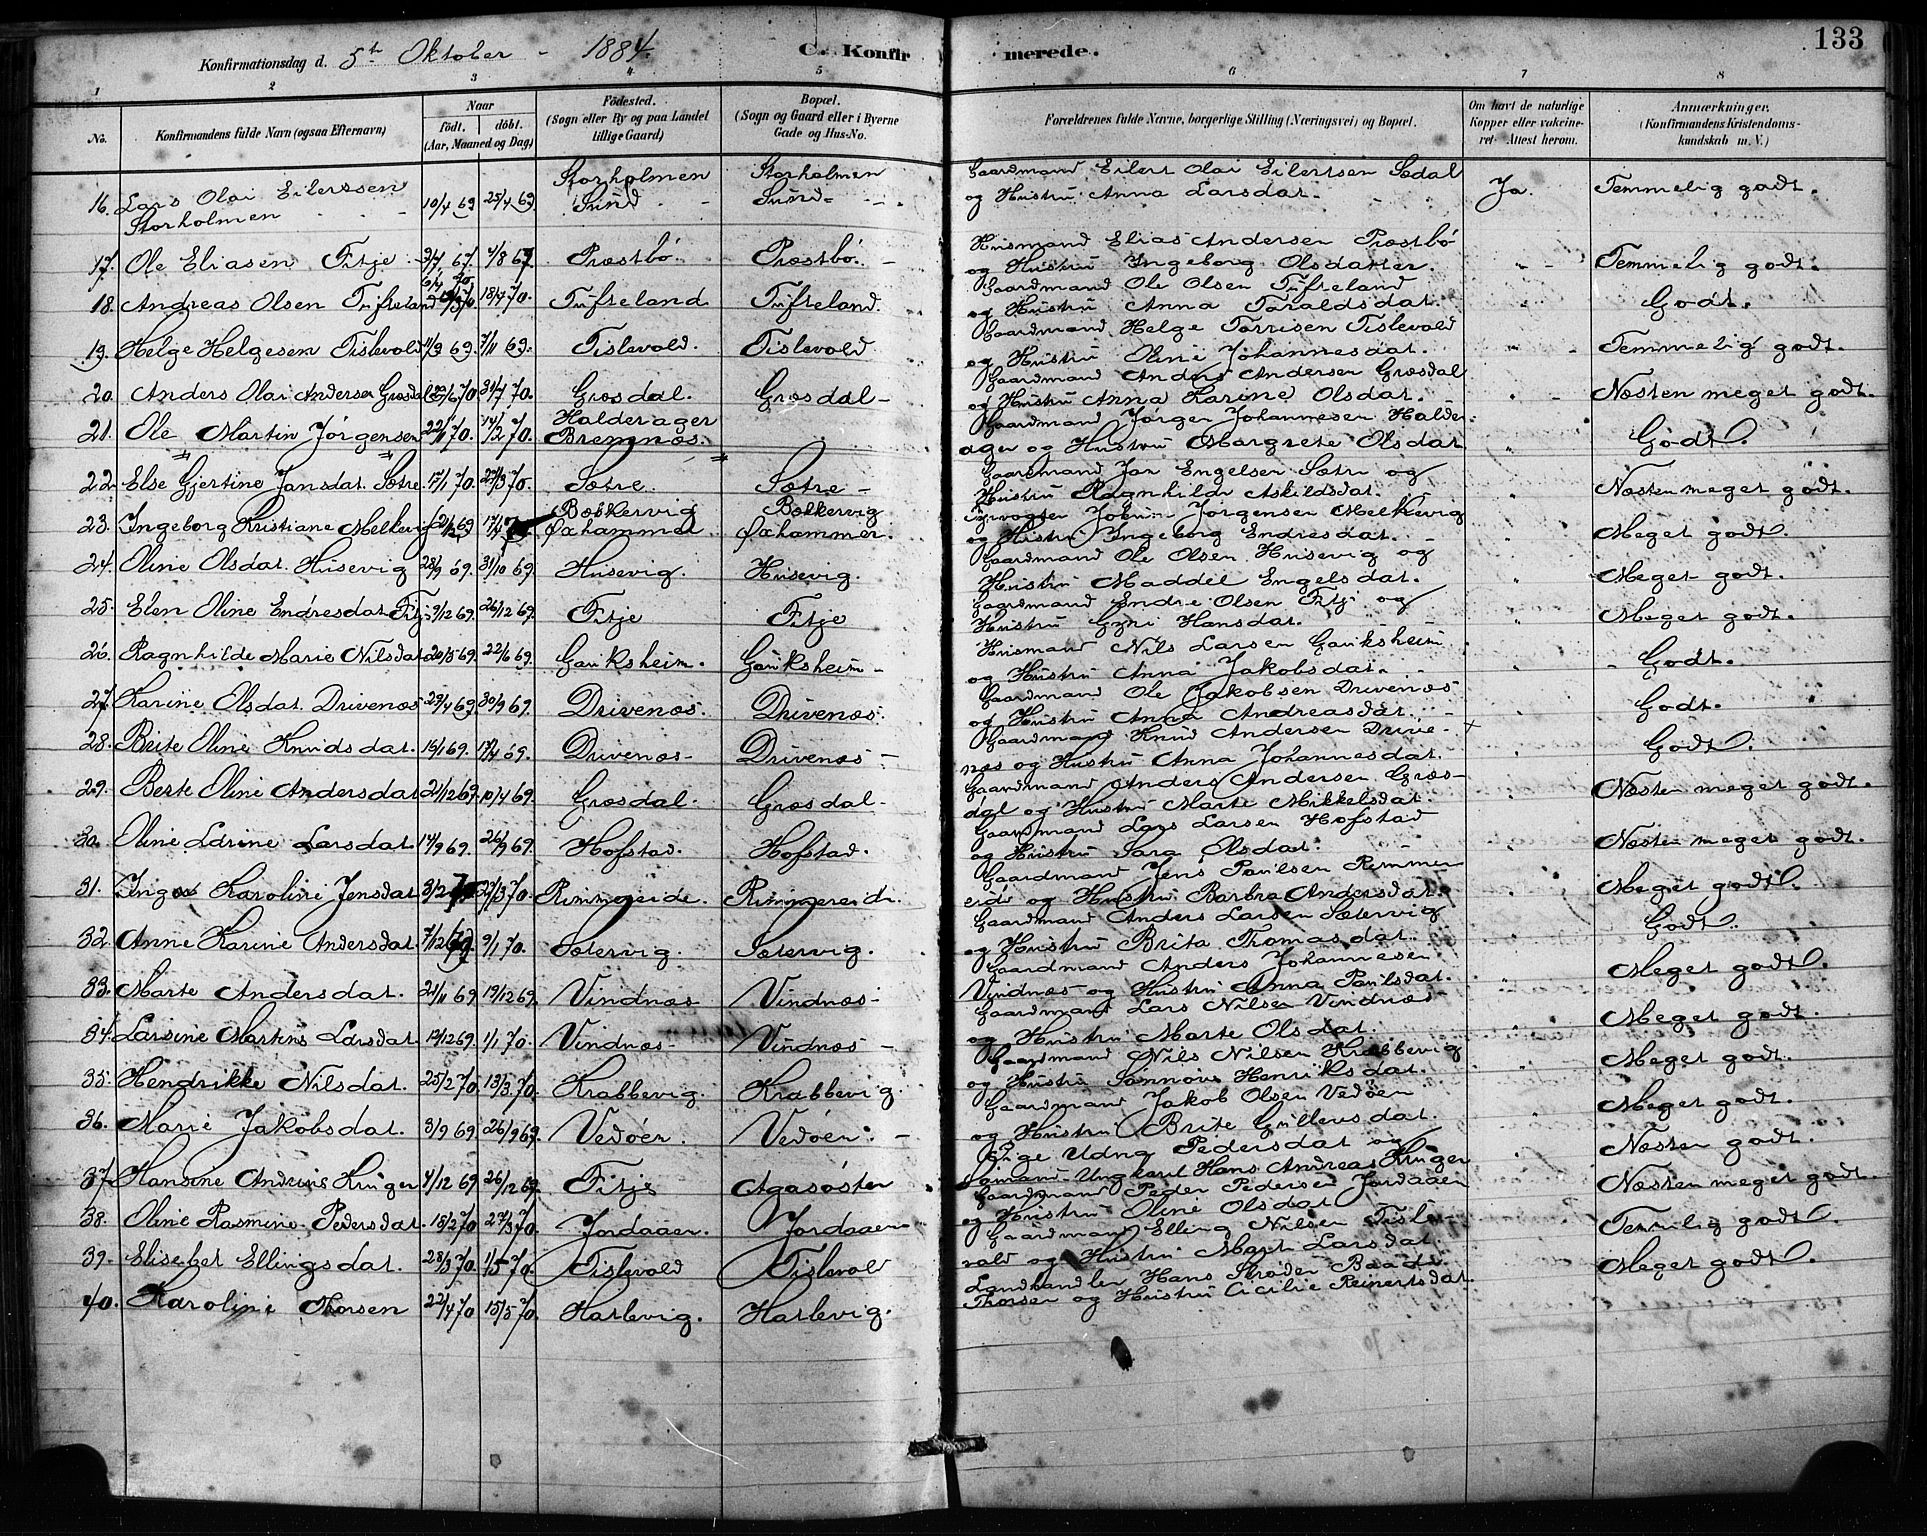 133
Konfirmationsdag d. 5te Oktober - 1884. C. Konfirmerede.
1 2 3 4 5 6 7 8
No. Konfirmandens fulde Navn (ogsaa Efternavn) Naar født. døbt. (Aar, Maaned og Dag) Fødested. (Sogn eller By og paa Landet tillige Gaard) Bopæl. (Sogn og Gaard eller i Byerne Gade og Hus-No. Forældrenes fulde Navne, borgerlige Stilling (Næringsvei) og Bopæl. Om havt de naturlige Kopper eller vaccineret. Attest herom. Anmærkninger. (Konfirmandens Kristendomskundskab m. V.)
16. Lars Olai Eilertsen Storholmen 10/4 69 25/4 69. Storholmen Sund - Storholmen Sund - Gaardmand Eilert Olai Eilertsen Sedal og Hustru Anna Larsdat. Ja. Temmelig godt.
17. Ole Eliasen Fitje 3/7 67. 4/8 67. Præstbø. Præstbø. Husmand Elias Andersen Præstbø og Hustru Ingeborg Olsdatter. " Temmelig godt.
18. Andreas Olsen Tufteland 18/4 70. Tufteland Tufteland. Gaardmand Ole Olsen Tufteland og Hustru Anna Taraldsdat. " Godt.
19. Helge Helgesen Tislevold 11/9 69. 7/11 69. Tislevold. Tislevold Gaardmand Helge Torrisen Tislevold og Hustru Oline Johannesdat. " Temmelig godt.
20. Anders Olai Andersen Græsdal 22/6 70 31/7 70. Græsdal. Græsdal - Gaardmand Anders Andersen Græsdal og Hustru Anna Karine Olsdat. " Næsten meget godt.
21. Ole Martin Jørgensen 22/1 70. 14/2 70. Halderager Bremnæs. " Gaardmand Jørgen Johannesen Halderager og Hustru Margrete Olsdat " Godt.
22. Else Gjertine Jansdat. Sætre. 17/1 70. 27/3 70. Sætre Sætre - Gaardmand Jan Engelsen Sætre og Hustru Ragnhilde Askildsdat. " Næsten meget godt.
23. Ingeborg Kristiane Melkevig 69 17/4 Bækkervig Øxhammer Bækkervig Øxhammer. Fyrvogter Johan Jørgensen Melkevig og Hustru Ingeborg Endresdat. " Meget godt.
24. Oline Olsdat. Husevig 28/9 69. 31/10 69. Husevig. Husevig. Gaardmand Ole Olsen Husevig og Hustru Maddel Engelsdat. " Meget godt.
25. Elen Oline Endresdat Fitje 9/12 69. 26/12 69. Fitje Fitje Gaardmand Endre Olsen Fitje og Hustru Gyri Hansdat. " Meget godt.
26. Ragnhilde Marie Nilsdat 20/5 69. 22/6 69. Gauksheim. Gauksheim - Husmand Nils Larsen Gauksheim og Hustru Anna Jakobsdat. " Godt.
27. Karine Olsdat Drivenæs 29/4 69. 30/9 69. Drivenæs. Drivenæs. Gaardmand Ole Jakobsen Drivenæs og Hustru Anna Andreasdat. " Godt.
28. Brite Oline Knudsdat. 19/1 69. 17/4 69. Drivenæs - Drivenæs - Gaardmand Knud Andersen Drivenæs og Hustru Anna Johannesdat. " Godt.
29. Berte Oline Andersdat 21/12 69. 10/4 69. Græsdal. Græsdal - Gaardmand Anders Andersen Græsdal og Hustru Marte Mikkelsdat. " Næsten meget godt.
30. Oline Larine Larsdat. 14/9 69. 26/9 69. Hofstad. Hofstad. Gaardmand Lars Larsen Hofstad og Hustru Sara Olsdat. Næsten meget godt.
31. Inga Karoline Jensdat 3/2 70 27/3 70. Rimmereide. Rimmereide. Gaardmand Jens Paulsen Rimmereide og Hustru Barbra Andersdat. Meget godt.
32. Anne Karine Andersdat. 7/12 69. 9/1 70. Sætervig. Sætervig. Gaardmand Anders Larsen Sætervig og Hustru Brita Thomasdat. Godt.
33. Marte Andersdat. 21/11 69 19/12 69. Vindnæs Vindnæs - Gaardmand Anders Johannesen Vindnæs og Hustru Anna Paulsdat. " Meget godt.
34. Larsine Martine Larsdat 12/12 69. 1/1 70. Vindnæs - Vindnæs - Gaardmand Lars Nilsen Vindnæs og Hustru Marte Olsdat. " Meget godt.
35. Hendrikke Nilsdat. 25/2 70. 13/3 70. Krabbevig. Krabbevig. Gaardmand Nils Nilsen Krabbevig og Hustru Sønnove Henriksdat. " Meget godt.
36. Marie Jakobsdat. 3/9 69. 26/9 69. Vedøen. Vedøen. - Gaardmand Jakob Olsen Vedøen og Hustru Brite Gullevsdat. " Meget godt.
37. Hansine Andrine Krüger 4/12 69 26/12 69 Fitje Agasøster Pige Udna Pedersdat og Sømand Ungkarl Hans Andreas Krüger " Næsten godt.
38. Oline Rasmine Pedersdat. 15/2 70 27/3 70. Jordaaen. Jordaaen Gaardmand Peder Pedersen Jordaaen og Hustru Oline Olsdat Næsten meget godt.
39. Elisebet Ellingsdat. 28/3 70. 1/5 70. Tislevold Tislevold Gaardmand Elling Nilsen Tislevold og Hustru Marte Larsdat. Temmelig godt.
40. Karoline Thorsen 22/4 70 15/5 70. Harlevig. Harlevig. Landhandler Hans Thorsen og Hustru Cicilie Reinertsdat. Meget godt.